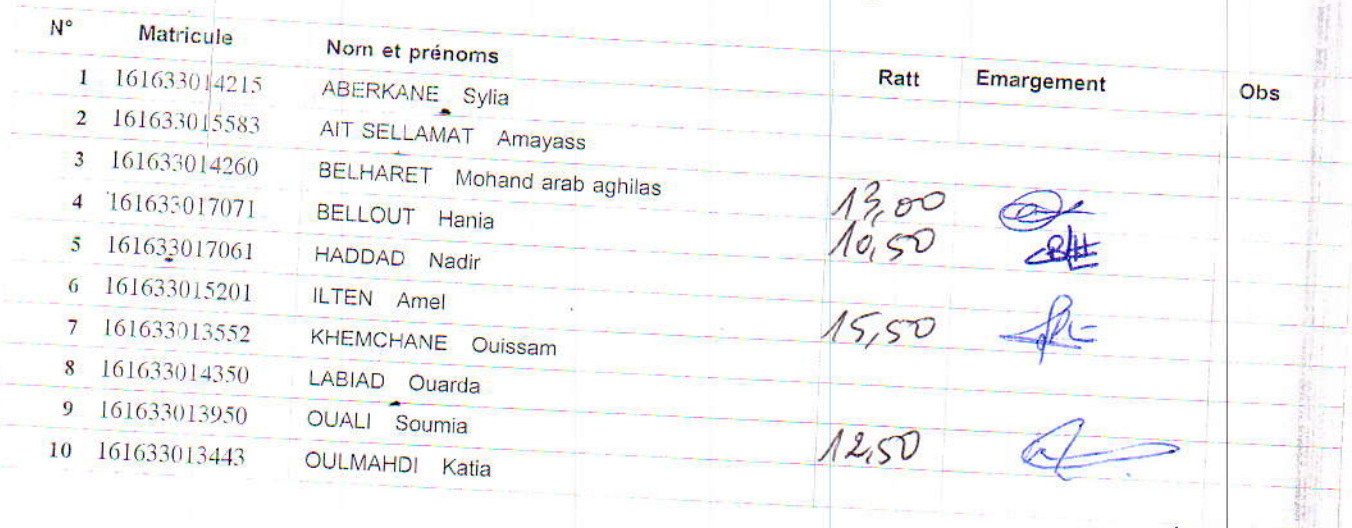 N° Matricule Nom et prénoms Ratt Emargement Obs
1 161633014215 ABERKANE Sylia
2 161633015583 AIT SELLAMAT Amayass
3 161633014260 BELHARET Mohand arab aghilas 13,00
4 161633017071 BELLOUT Hania 10,50
5 161633017061 HADDAD Nadir
6 161633015201 ILTEN Amel 15,50
7 161633013552 KHEMCHANE Ouissam
8 161633014350 LABIAD Ouarda
9 161633013950 OUALI Soumia 12,50
10 161633013443 OULMAHDI Katia